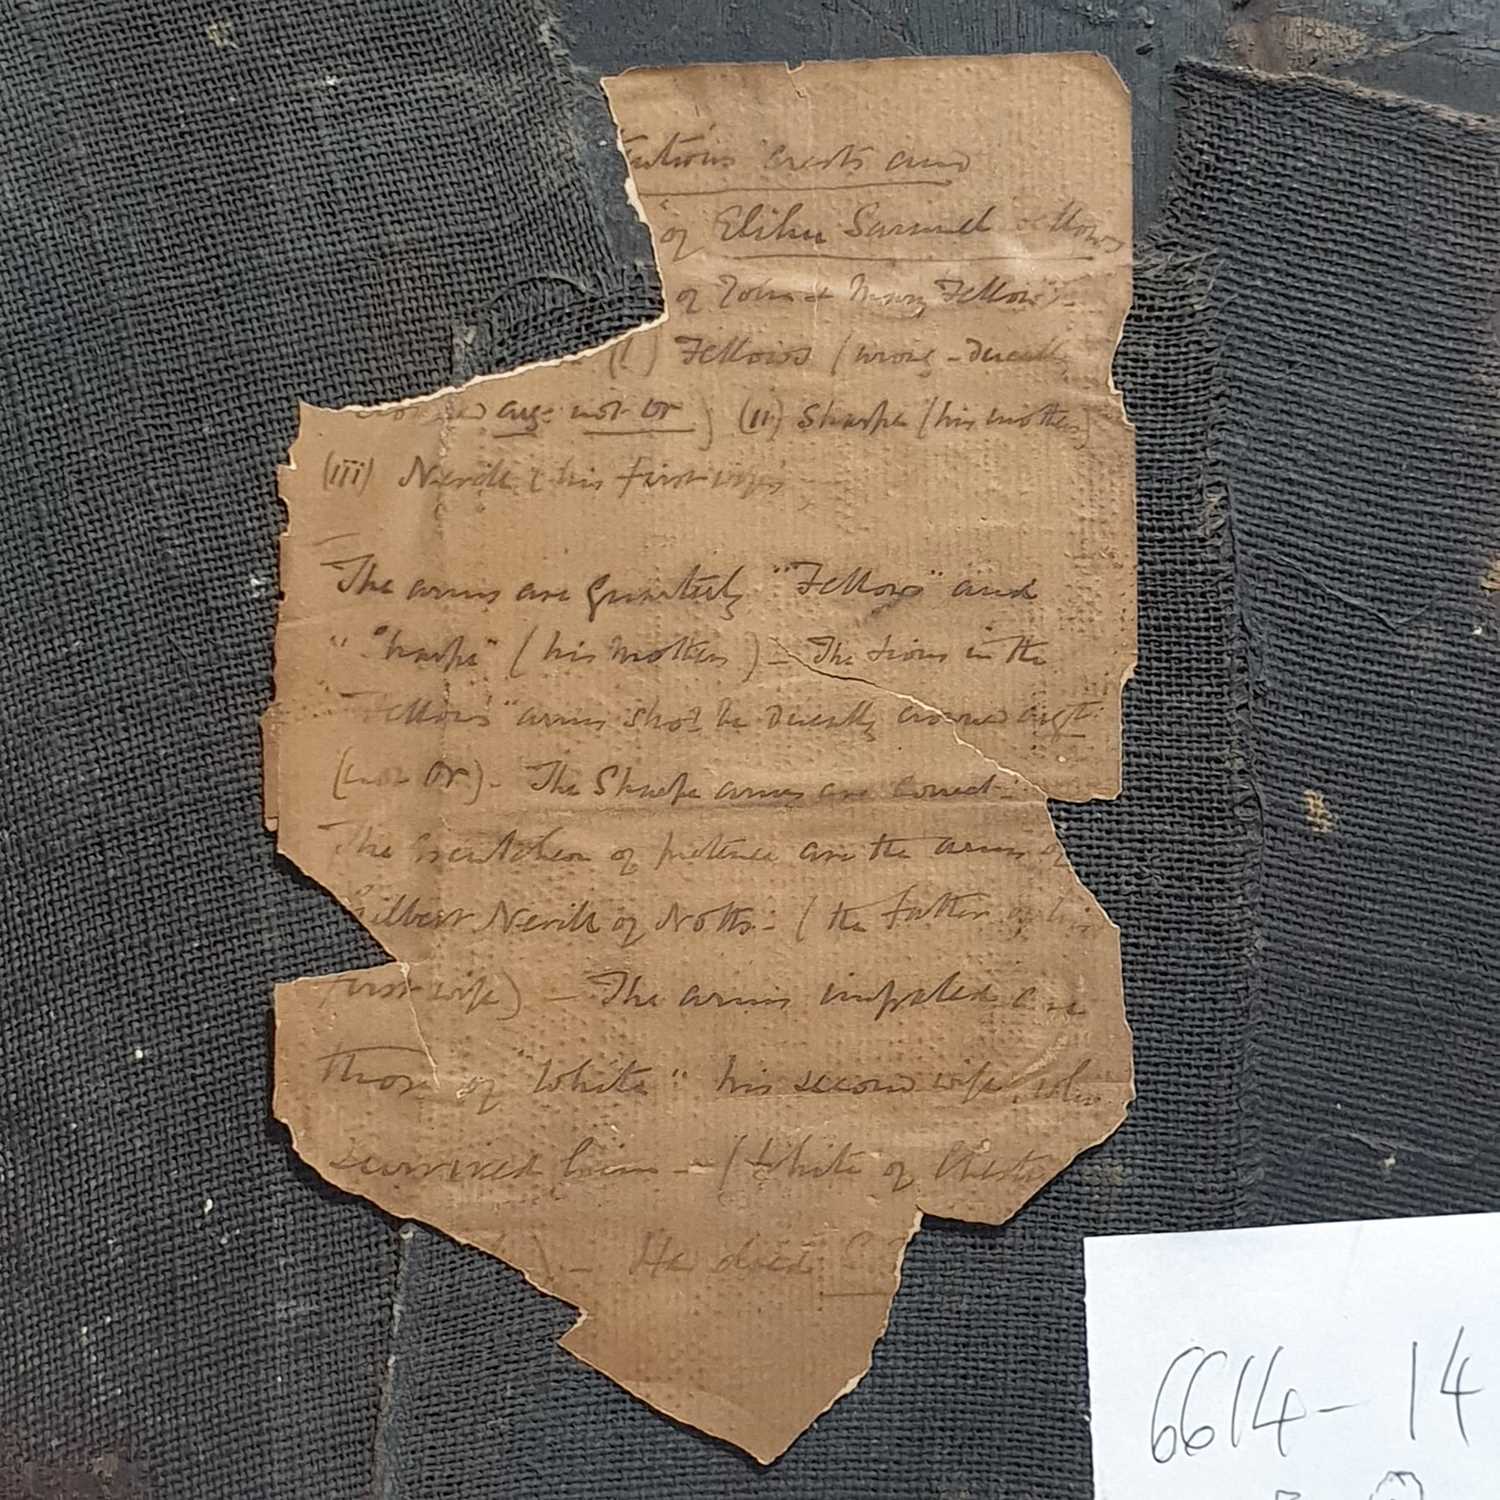 crests and
of Elihu Samuel Fellows
of John & Mary Fellows
(I) Fellows (wrong - Ducally
arg: not or) (II) Sharpe (his mothers)
(III) Nevill (his first wife's
The arms are quarterly "Fellows" and
"Sharpe" (his mothers) - The Lions in the
"Fellows" arms shod be Ducally crowned argt.
(not Or) - The Sharpe arms are correct -
The Escutcheon of pretence are the arms of
Gilbert Nevill of Notts - (the father of his
first wife) - The arms impaled are
those of "White" his second wife, who
survived him - (White of
) - He died
6614-14